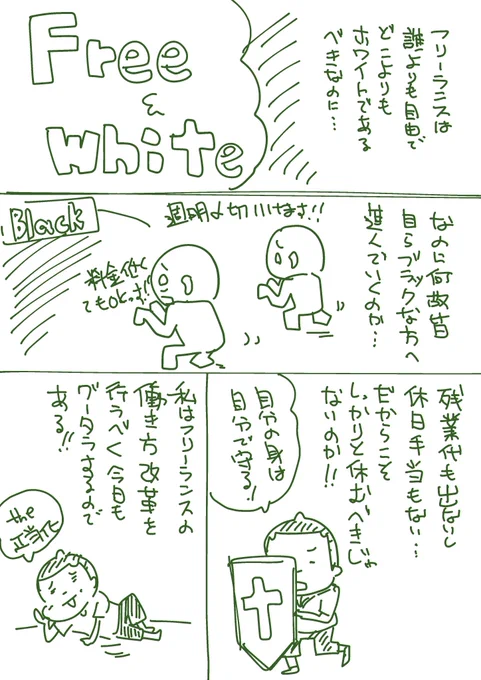 フリーランスは
誰よりも自由で
どこよりも
ホワイトである
べきなのに…
Free
&
White
なのに何故皆
自らブラックな方へ
進んでいくのか…
週明〆切いけます!!
料金低く
てもOKっす!!
Black
残業代も出ないし
休日手当もない…
だからこそ
しっかりと休むべきじゃ
ないのか!!
自分の身は
自分で守る!
私はフリーランスの
働き方改革を
行うべく今日も
グータラするので
ある!!
the
正当化